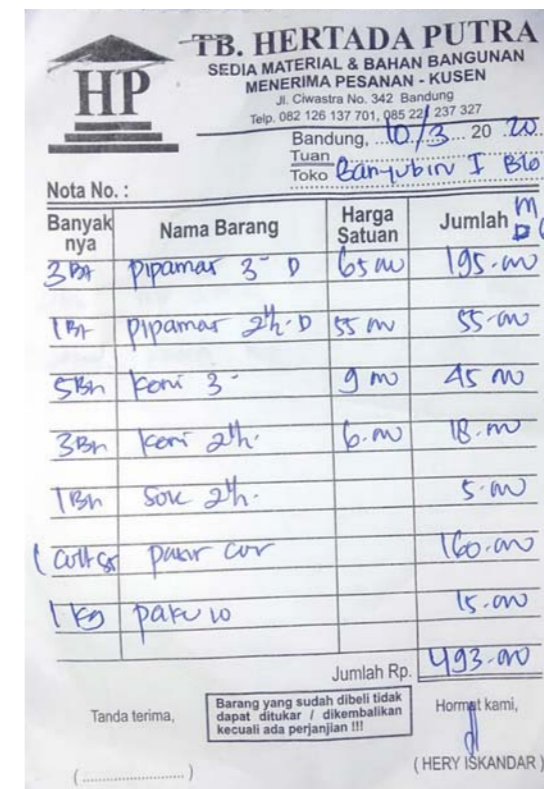 HP
TB. HERTADA PUTRA
SEDIA MATERIAL & BAHAN BANGUNAN
MENERIMA PESANAN - KUSEN
Jl. Ciwastra No. 342 Bandung
Telp. 082 126 137 701, 085 221 237 327
Bandung, 10/3 20 20
Tuan
Toko Banyubiru I Blo
Nota No. :
Banyak nya Nama Barang Harga Satuan Jumlah
3 Bt pipamar 3" D 65 000 195.000
1 Bt pipamar 2½" D 55 000 55.000
5 Bh keni 3" 9 000 45 000
3 Bh keni 2½" 6.000 18.000
1 Bh sok 2½" 5.000
1 pasir cor 160.000
1 kg paku 10 15.000
Jumlah Rp. 493.000
Tanda terima,
Barang yang sudah dibeli tidak
dapat ditukar / dikembalikan
kecuali ada perjanjian !!!
Hormat kami,
(HERY ISKANDAR)